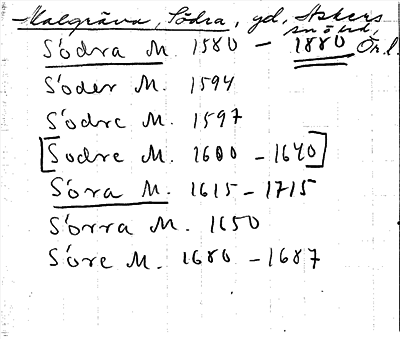 Malgräva, Södra, gd, Askers
snövd,
Södra M. 1580 – 1880 Ör. l.
Söder M. 1594
Södre M. 1597
[Södre M. 1600 – 1640]
Söra M. 1615 – 1715
Sörra M. 1650
Söre M. 1680 – 1687